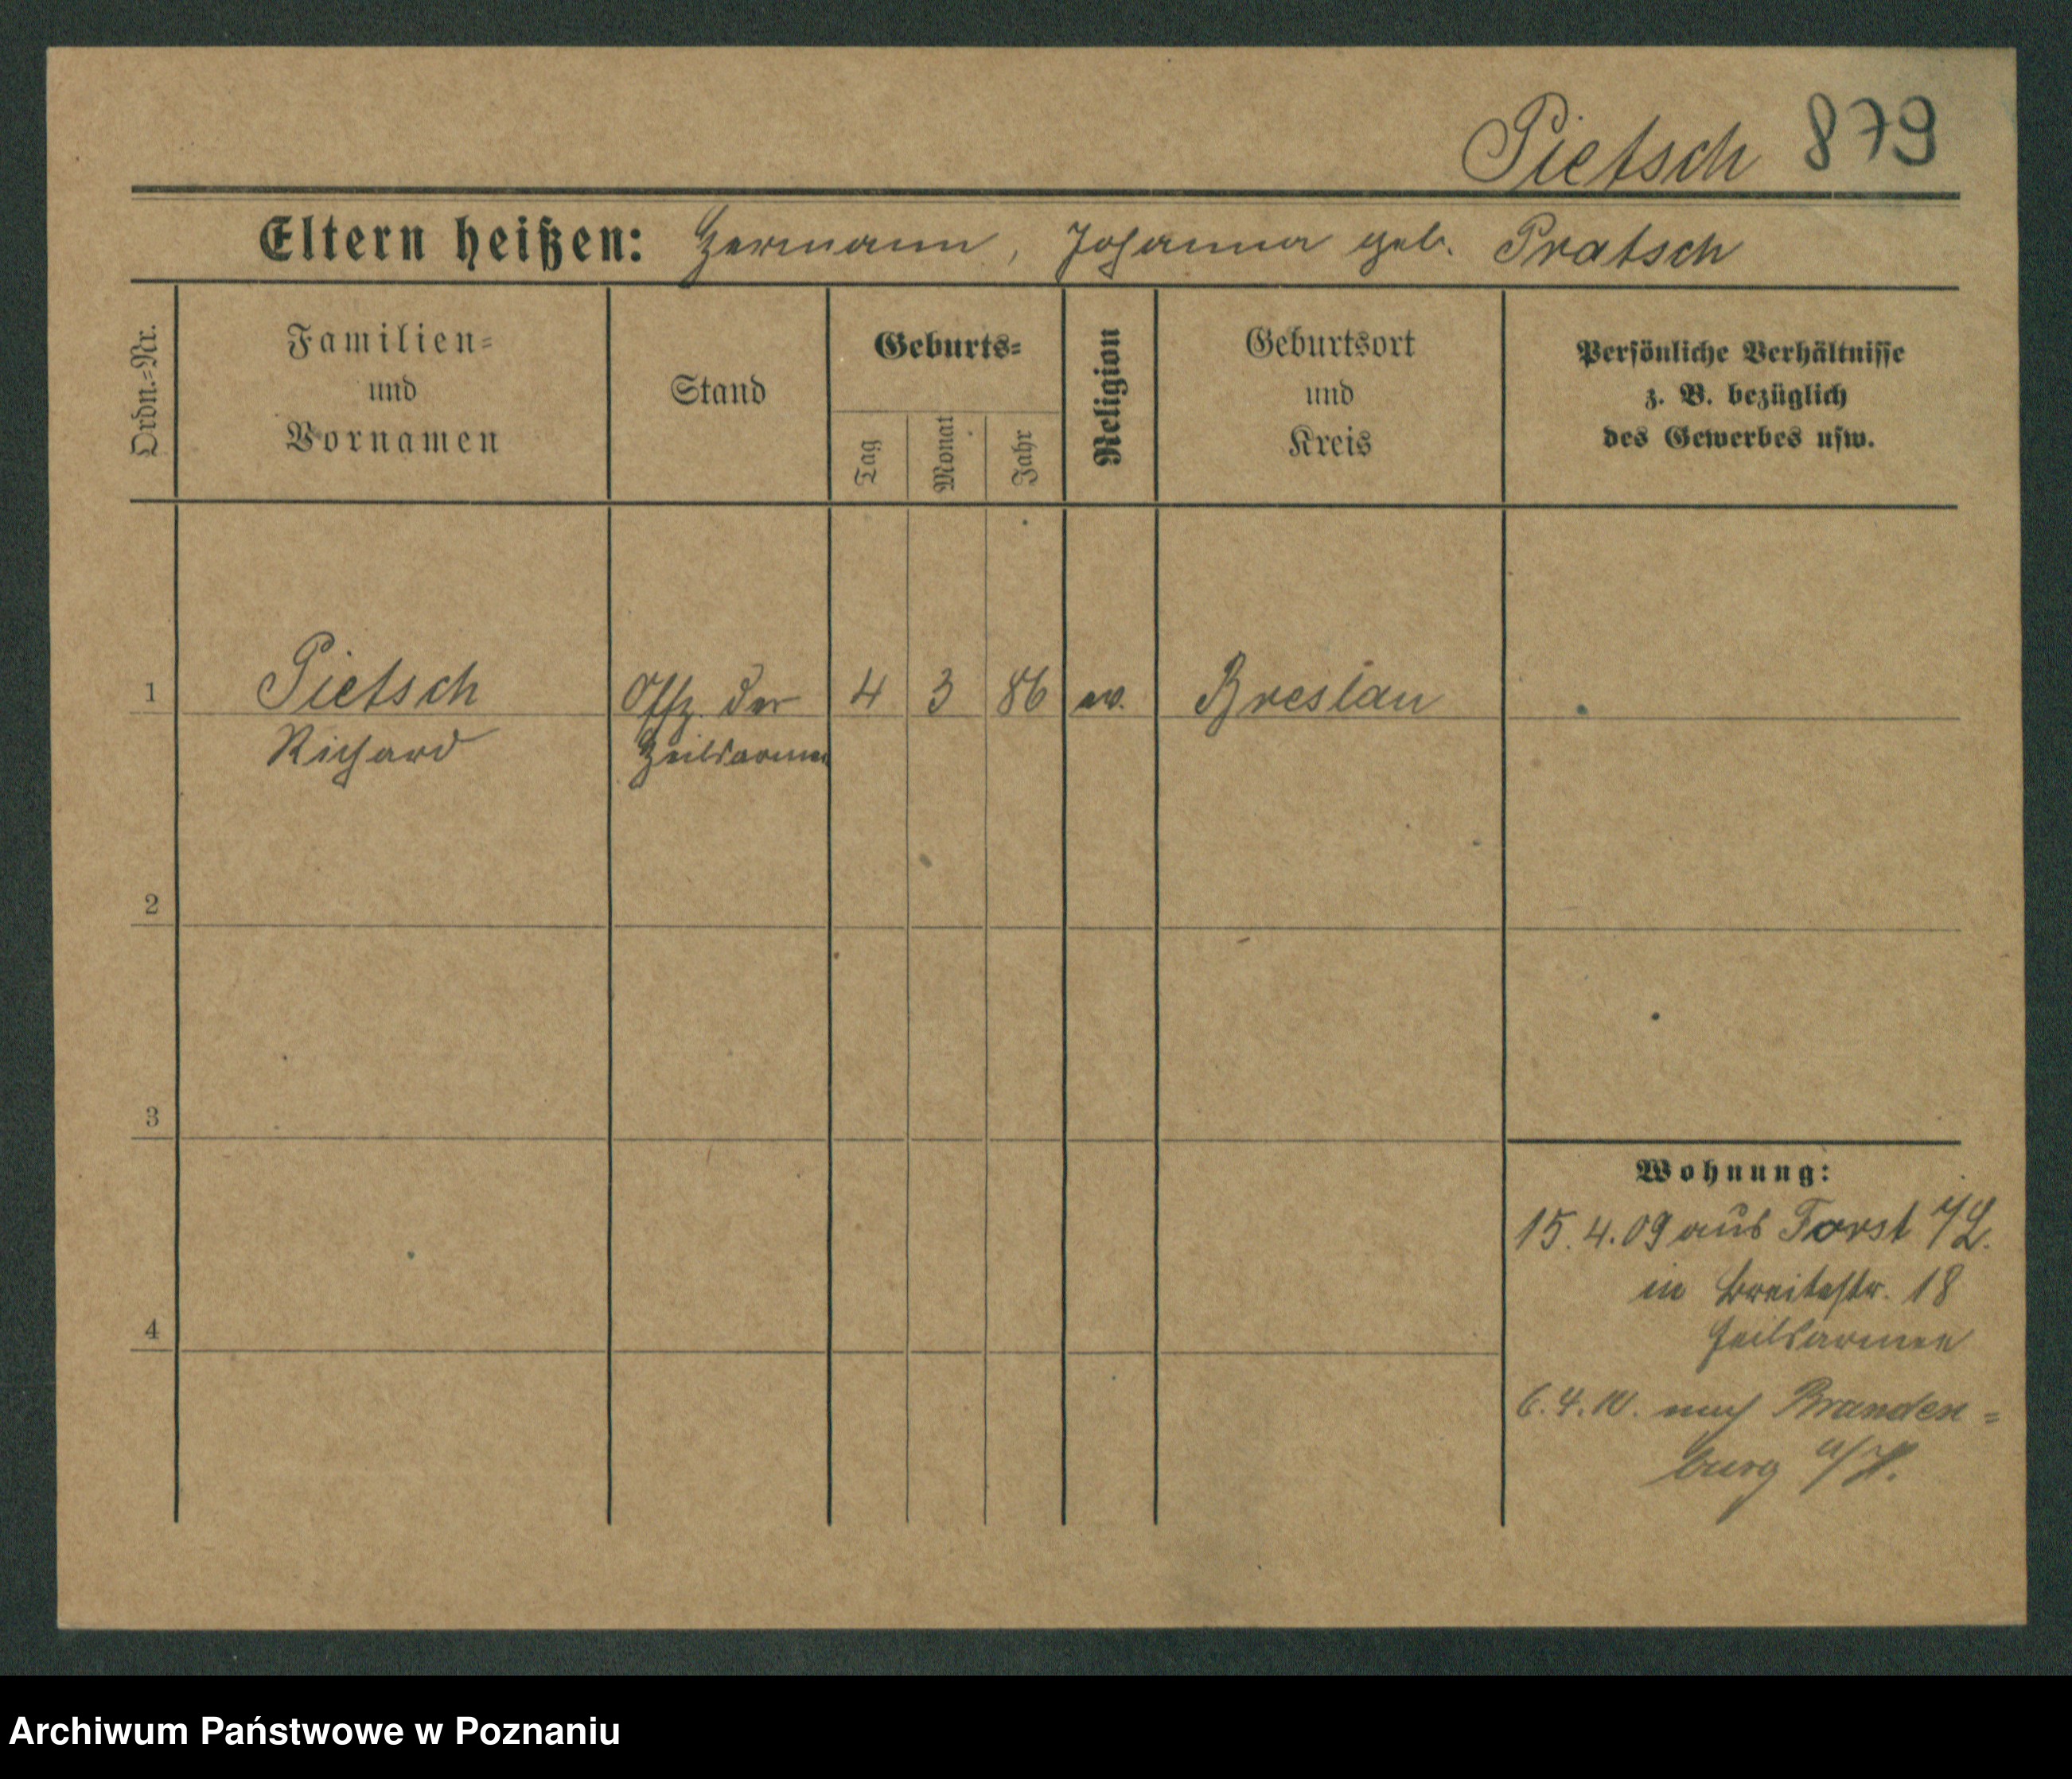 Pietsch 879
Eltern heißen: Hermann, Johanna geb. Pratsch
Ordn.=Nr.
Familien=
und
Vornamen
Stand
Geburts=
Tag
Monat
Jahr
Religion
Geburtsort
und
Kreis
Persönliche Verhältnisse
z. B. bezüglich
des Gewerbes usw.
1 Pietsch Offz. der 4 3 86 ev. Breslau
Richard Heilsarmee
2
3
4
Wohnung:
15.4.09 aus Forst i/L.
in Breitestr. 18
Heilsarmee
6.4.10. nach Branden=
burg a/H.
Archiwum Państwowe w Poznaniu